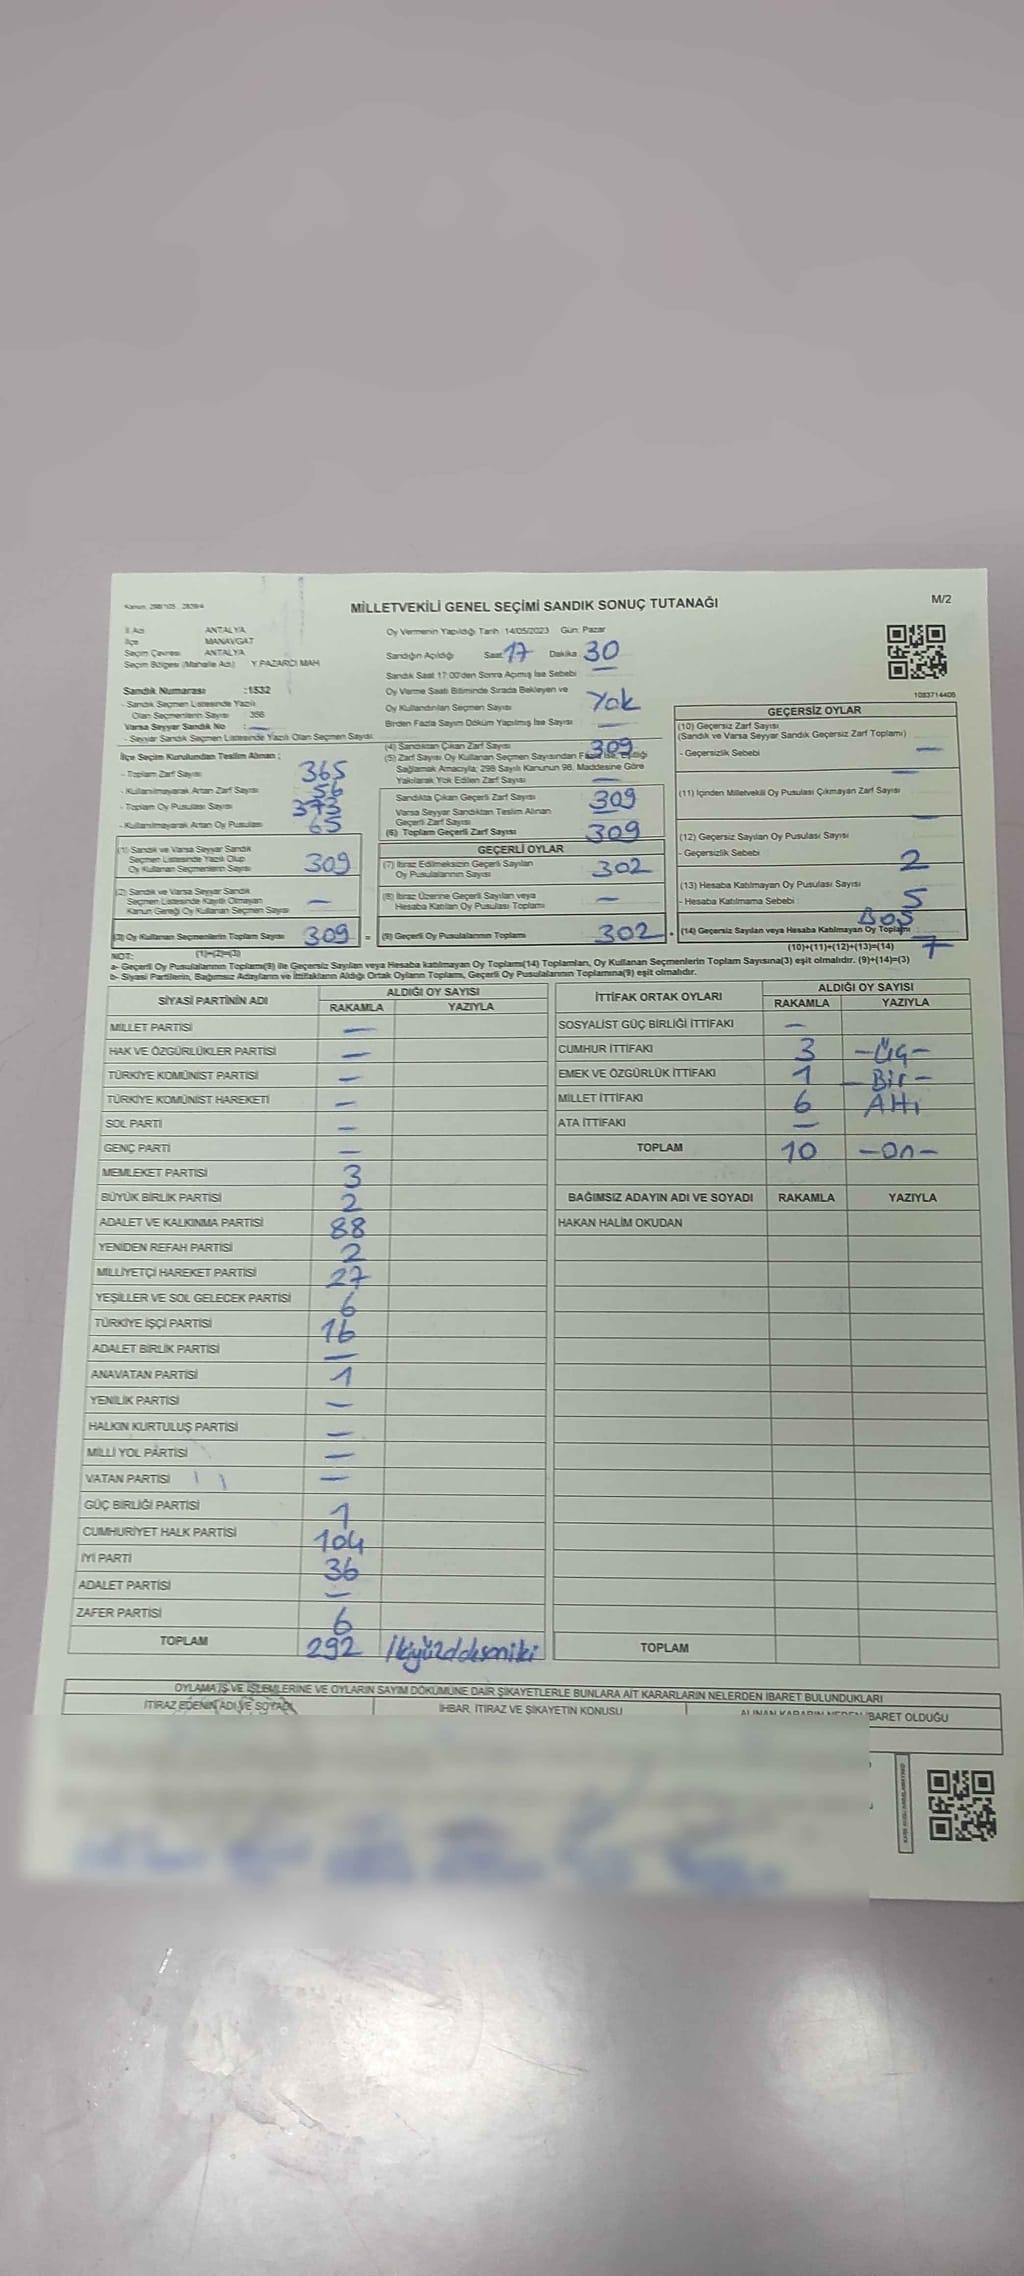 Kanun: 298/105 , 2839/4
MİLLETVEKİLİ GENEL SEÇİMİ SANDIK SONUÇ TUTANAĞI
M/2
İl Adı ANTALYA
İlçe MANAVGAT
Seçim Çevresi ANTALYA
Seçim Bölgesi (Mahalle Adı) Y.PAZARCI MAH
Sandık Numarası :1532
- Sandık Seçmen Listesinde Yazılı
Olan Seçmenlerin Sayısı 356
Varsa Seyyar Sandık No : —
- Seyyar Sandık Seçmen Listesinde Yazılı Olan Seçmen Sayısı:
Oy Vermenin Yapıldığı Tarih :14/05/2023 Gün: Pazar
Sandığın Açıldığı Saat 17 Dakika 30
Sandık Saat 17:00'den Sonra Açılmış İse Sebebi —
Oy Verme Saati Bitiminde Sırada Bekleyen ve
Oy Kullandırılan Seçmen Sayısı Yok
Birden Fazla Sayım Döküm Yapılmış İse Sayısı —
1083714406
İlçe Seçim Kurulundan Teslim Alınan ;
- Toplam Zarf Sayısı 365
- Kullanılmayarak Artan Zarf Sayısı 56
- Toplam Oy Pusulası Sayısı 373
- Kullanılmayarak Artan Oy Pusulası 65
(1) Sandık ve Varsa Seyyar Sandık
Seçmen Listesinde Yazılı Olup
Oy Kullanan Seçmenlerin Sayısı 309
(2) Sandık ve Varsa Seyyar Sandık
Seçmen Listesinde Kayıtlı Olmayan
Kanun Gereği Oy Kullanan Seçmen Sayısı —
(3) Oy Kullanan Seçmenlerin Toplam Sayısı 309 =
(1)+(2)=(3)
(4) Sandıktan Çıkan Zarf Sayısı 309
(5) Zarf Sayısı Oy Kullanan Seçmen Sayısından Fazla ise, Eşitliği
Sağlamak Amacıyla; 298 Sayılı Kanunun 98. Maddesine Göre
Yakılarak Yok Edilen Zarf Sayısı —
Sandıkta Çıkan Geçerli Zarf Sayısı 309
Varsa Seyyar Sandıktan Teslim Alınan
Geçerli Zarf Sayısı —
(6) Toplam Geçerli Zarf Sayısı 309
GEÇERLİ OYLAR
(7) İtiraz Edilmeksizin Geçerli Sayılan
Oy Pusulalarının Sayısı 302
(8) İtiraz Üzerine Geçerli Sayılan veya
Hesaba Katılan Oy Pusulası Toplamı —
(9) Geçerli Oy Pusulalarının Toplamı 302 +
GEÇERSİZ OYLAR
(10) Geçersiz Zarf Sayısı
(Sandık ve Varsa Seyyar Sandık Geçersiz Zarf Toplamı)
- Geçersizlik Sebebi —
—
(11) İçinden Milletvekili Oy Pusulası Çıkmayan Zarf Sayısı
—
(12) Geçersiz Sayılan Oy Pusulası Sayısı
- Geçersizlik Sebebi 2
(13) Hesaba Katılmayan Oy Pusulası Sayısı
- Hesaba Katılmama Sebebi 5
BOŞ
(14) Geçersiz Sayılan veya Hesaba Katılmayan Oy Toplamı :
(10)+(11)+(12)+(13)=(14) 7
NOT:
a- Geçerli Oy Pusulalarının Toplamı(9) ile Geçersiz Sayılan veya Hesaba katılmayan Oy Toplamı(14) Toplamları, Oy Kullanan Seçmenlerin Toplam Sayısına(3) eşit olmalıdır. (9)+(14)=(3)
b- Siyasi Partilerin, Bağımsız Adayların ve İttifakların Aldığı Ortak Oyların Toplamı, Geçerli Oy Pusulalarının Toplamına(9) eşit olmalıdır.
SİYASİ PARTİNİN ADI ALDIĞI OY SAYISI
RAKAMLA YAZIYLA
MİLLET PARTİSİ —
HAK VE ÖZGÜRLÜKLER PARTİSİ —
TÜRKİYE KOMÜNİST PARTİSİ —
TÜRKİYE KOMÜNİST HAREKETİ —
SOL PARTİ —
GENÇ PARTİ —
MEMLEKET PARTİSİ 3
BÜYÜK BİRLİK PARTİSİ 2
ADALET VE KALKINMA PARTİSİ 88
YENİDEN REFAH PARTİSİ 2
MİLLİYETÇİ HAREKET PARTİSİ 27
YEŞİLLER VE SOL GELECEK PARTİSİ 6
TÜRKİYE İŞÇİ PARTİSİ 16
ADALET BİRLİK PARTİSİ —
ANAVATAN PARTİSİ 1
YENİLİK PARTİSİ —
HALKIN KURTULUŞ PARTİSİ —
MİLLİ YOL PARTİSİ —
VATAN PARTİSİ —
GÜÇ BİRLİĞİ PARTİSİ 1
CUMHURİYET HALK PARTİSİ 104
İYİ PARTİ 36
ADALET PARTİSİ —
ZAFER PARTİSİ 6
TOPLAM 292 İkiyüzddoksaniki
İTTİFAK ORTAK OYLARI ALDIĞI OY SAYISI
RAKAMLA YAZIYLA
SOSYALİST GÜÇ BİRLİĞİ İTTİFAKI —
CUMHUR İTTİFAKI 3 -Üç-
EMEK VE ÖZGÜRLÜK İTTİFAKI 1 -Bir-
MİLLET İTTİFAKI 6 Altı
ATA İTTİFAKI —
TOPLAM 10 -On-
BAĞIMSIZ ADAYIN ADI VE SOYADI RAKAMLA YAZIYLA
HAKAN HALİM OKUDAN
TOPLAM
OYLAMA İŞ VE İŞLEMLERİNE VE OYLARIN SAYIM DÖKÜMÜNE DAİR ŞİKAYETLERLE BUNLARA AİT KARARLARIN NELERDEN İBARET BULUNDUKLARI
İTİRAZ EDENİN ADI VE SOYADI İHBAR, İTİRAZ VE ŞİKAYETİN KONUSU ALINAN KARARIN NEDEN İBARET OLDUĞU